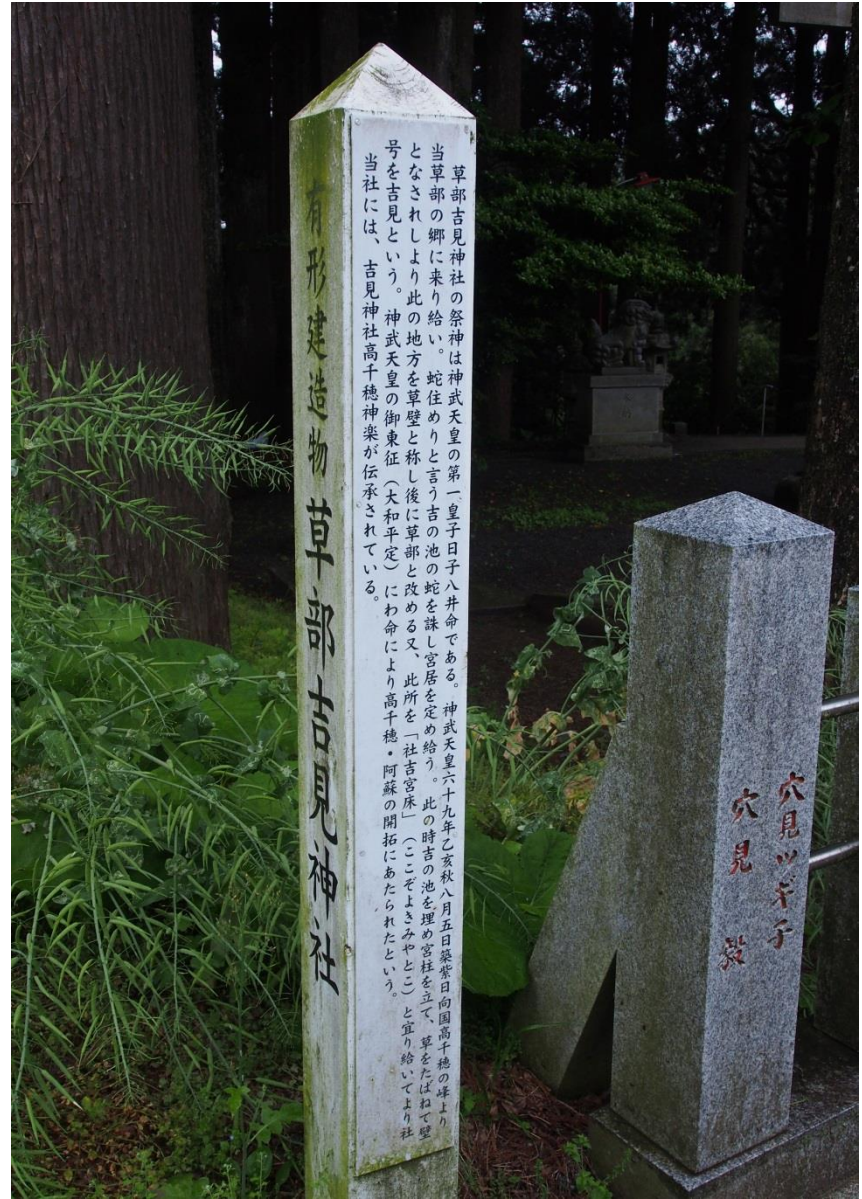 草部吉見神社の祭神は神武天皇の第一皇子日子八井命である。神武天皇六十九年乙亥秋八月五日築紫日向国高千穂の峰より
当草部の郷に来り給い。蛇住めりと言う吉の池の蛇を誅し宮居を定め給う。此の時吉の池を埋め宮柱を立て、草をたばねて壁
となされしより此の地方を草壁と称し後に草部と改める又、此所を「社吉宮床」(ここぞよきみやとこ)と宜り給いてより社
号を吉見という。神武天皇の御東征(大和平定)にわ命により高千穂・阿蘇の開拓にあたられたという。
当社には、吉見神社高千穂神楽が伝承されている。
有形建造物草部吉見神社
穴見ツギ子
穴見